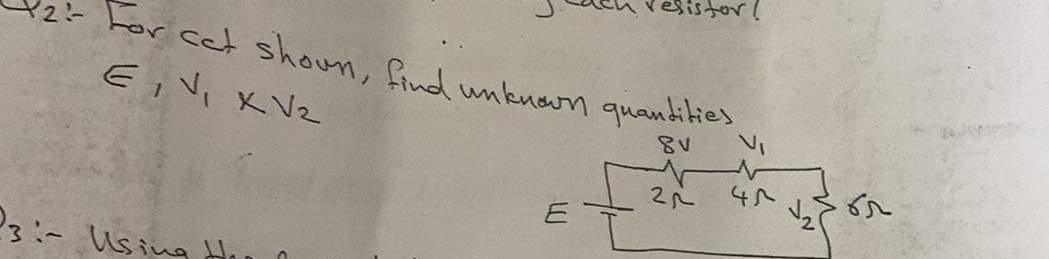 each resistor!
Q2:- For cct shown, find unknown quantities
E, V1 & V2
8V V1
2Ω 4Ω V2 6Ω
E
3:- Using the